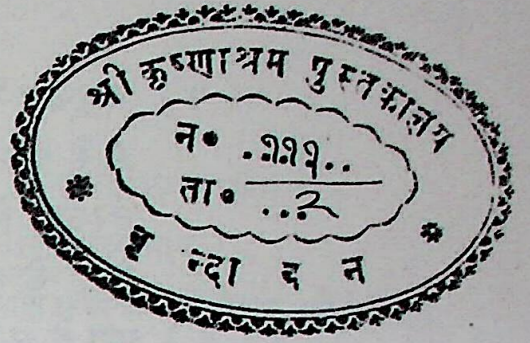 श्री कृष्णाश्रम पुस्तकालय
न० ..१११..
ता० ...2
वृन्दावन